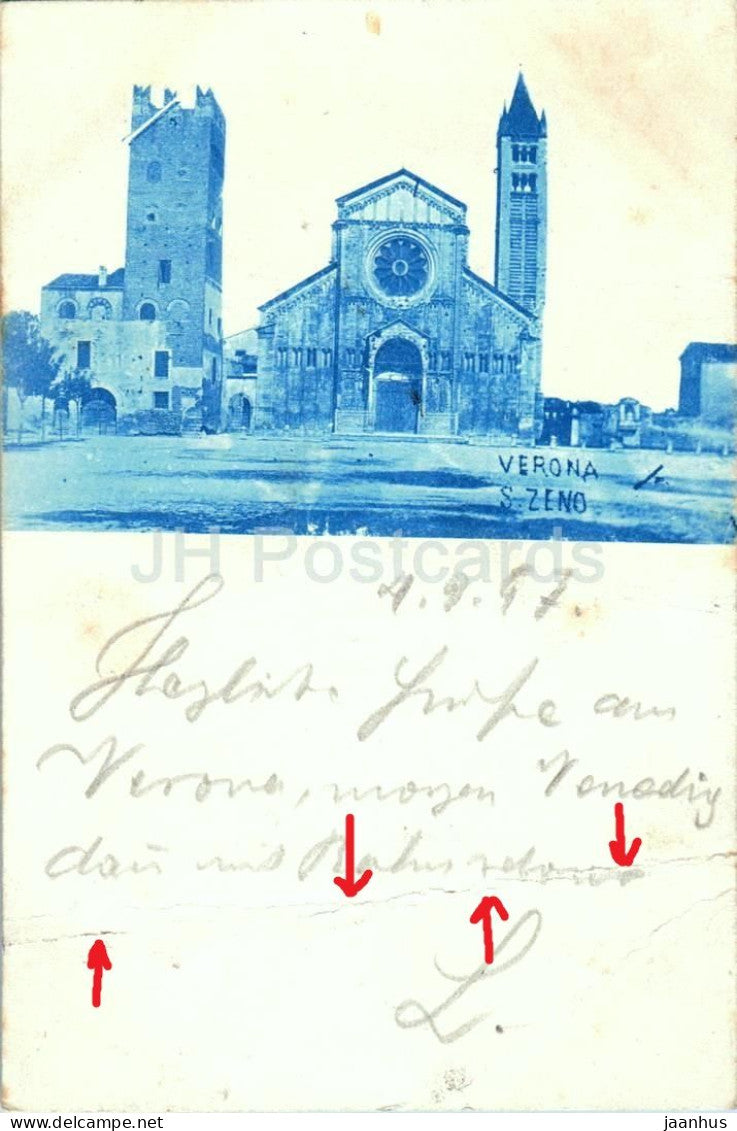 VERONA
S. ZENO
JH Postcards
4.9.97
Herzliche Grüße aus
Verona, morgen Venedig
dann mit
L.
www.delcampe.net
jaanhus